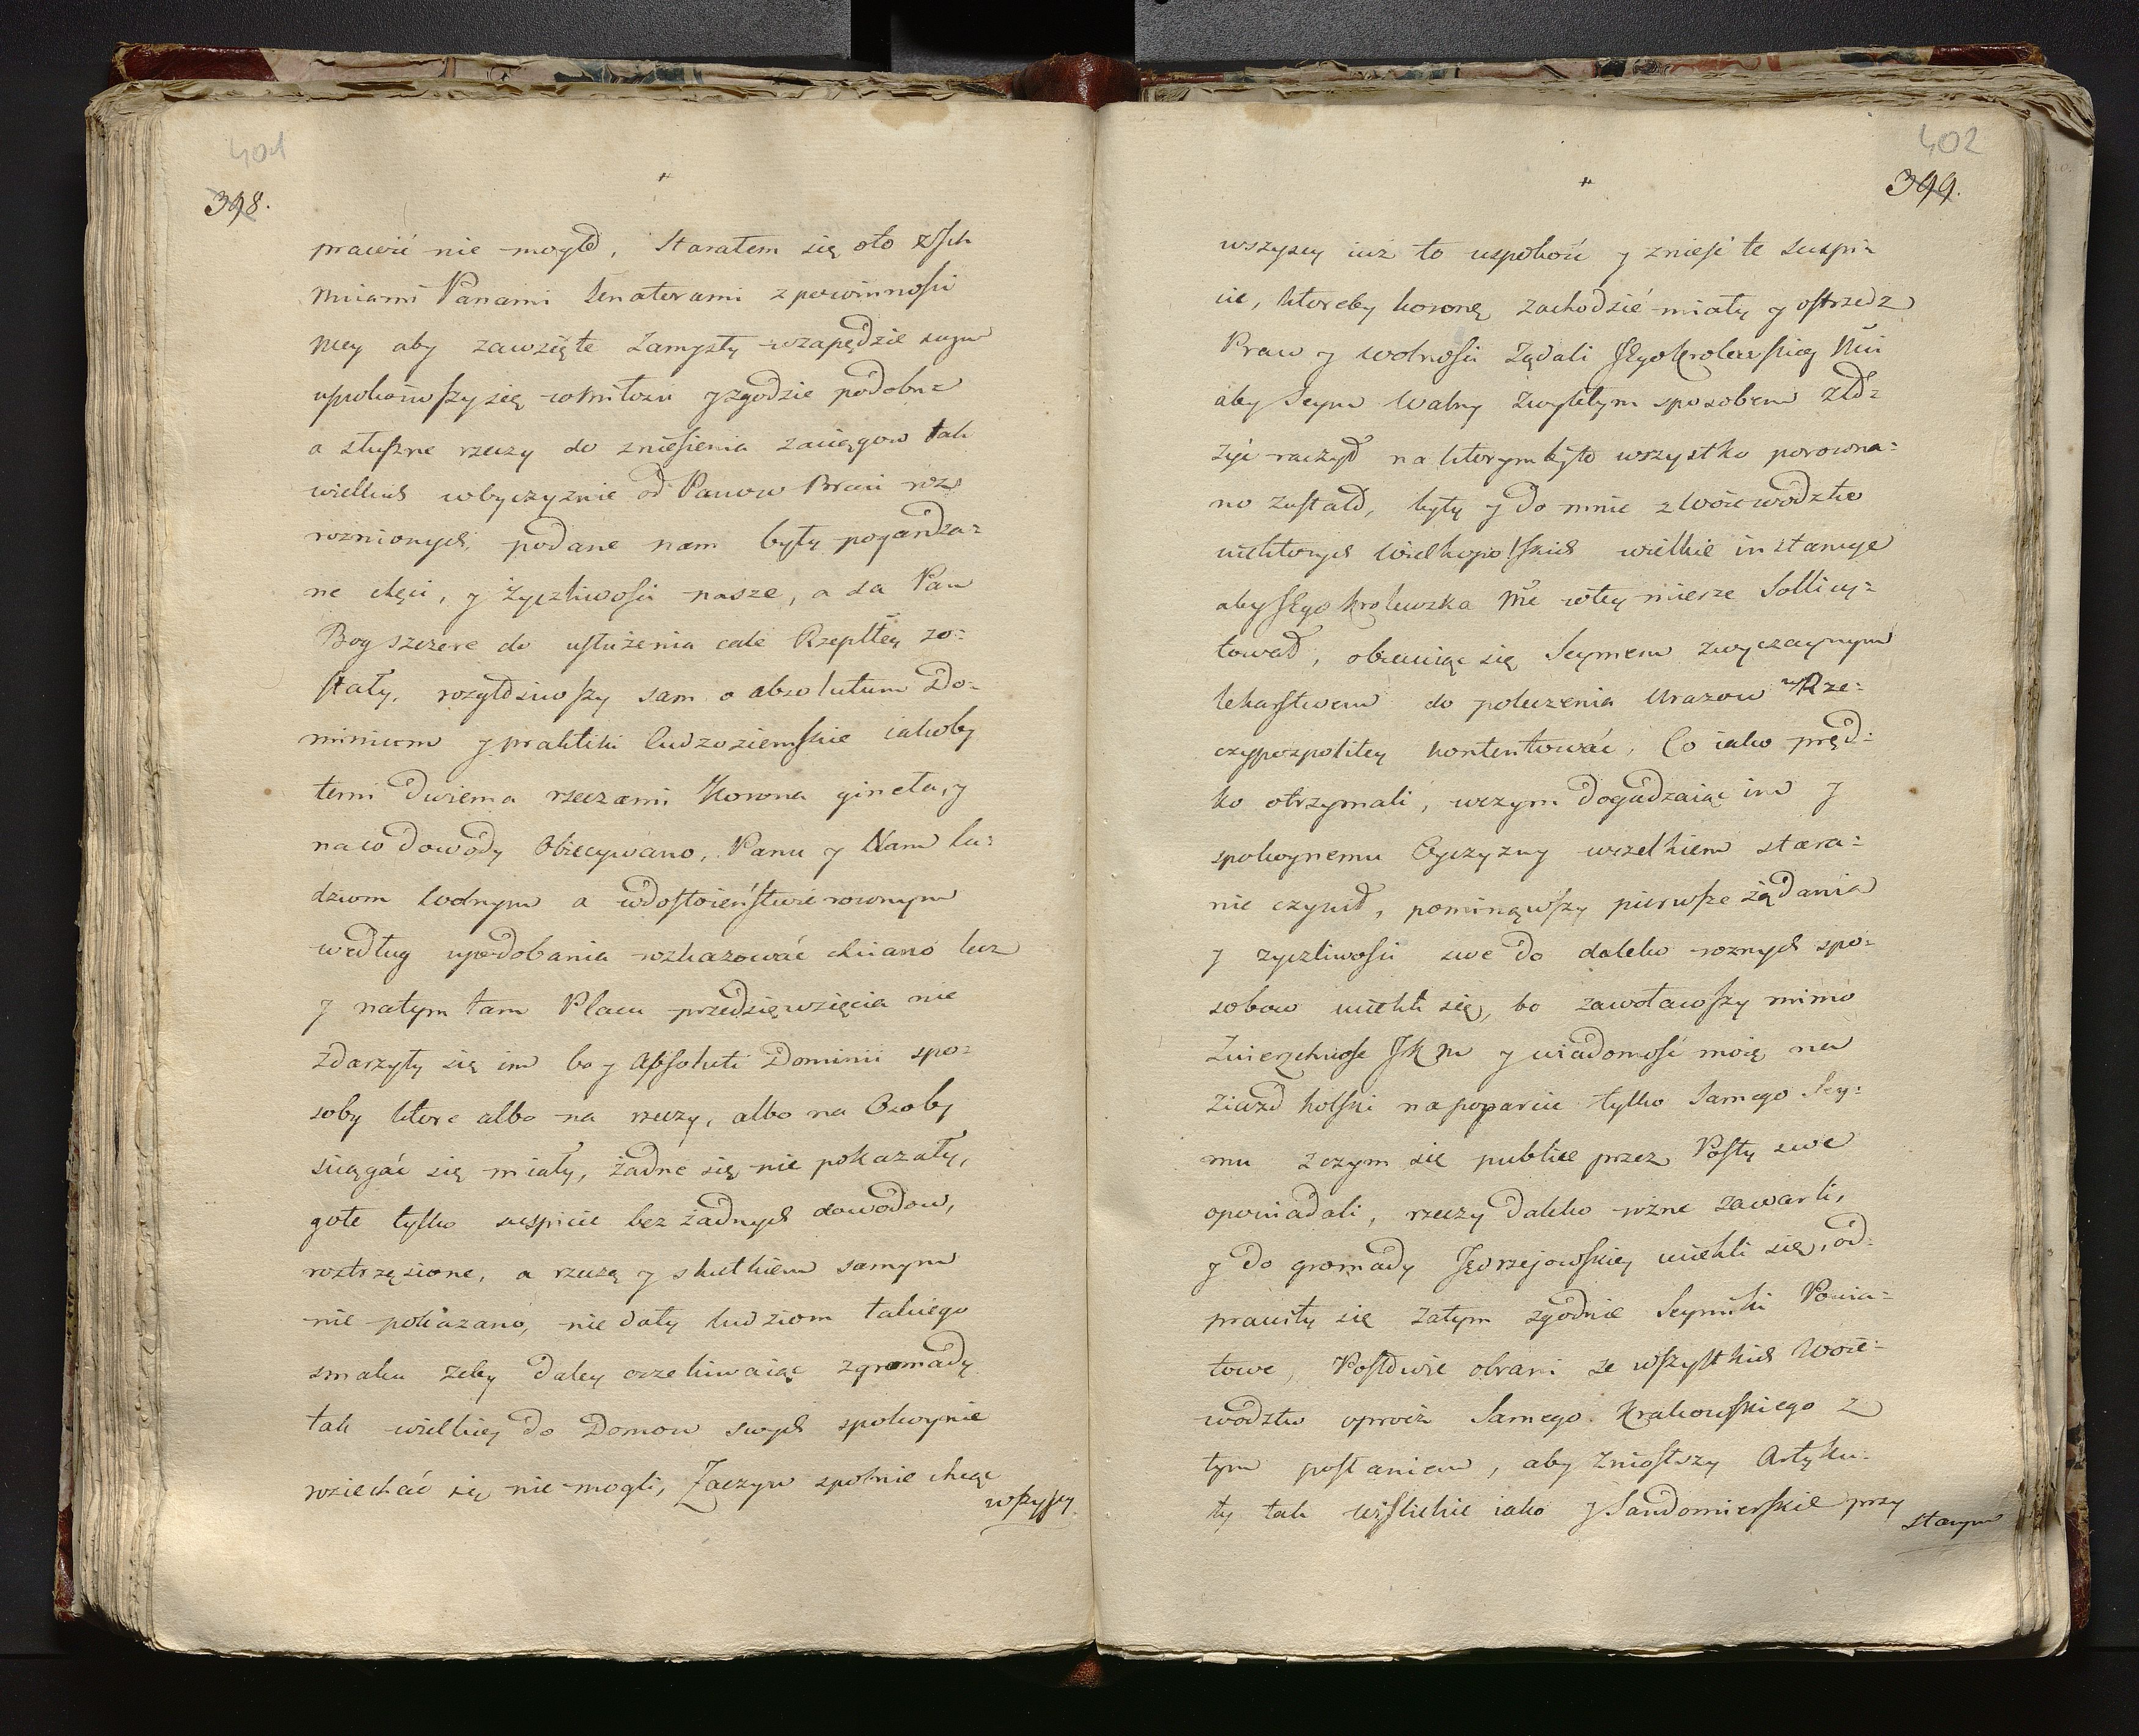 401
398.
prawić nie mogł, Starałem się oto z Ich
Mciami Pany Senatorami z powinności
mey aby zawzięte Zamysły w zapędzie swym
uspokoiwszy się w miłości y zgodzie podobne
a słuszne rzeczy do zniesienia zaciągow tak
wielkich w Oyczyznie od Panow Braci roz
roznionych, podane nam były pogardza=
ne chęci, y życzliwości nasze, a da Pan
Bog szczere do usłużenia całe Rzepltey zo=
stały, rozgłosiwszy sam o absolutum Do=
minium y praktiki Cudzoziemskie iakoby
temi dwiema rzeczami Korona gineła, y
na co dowody Obiecywano, Panu y Nam lu=
dziom wolnym a w dostoieństwie rownym
według upodobania rozkazować chciano lecz
y na tym tam Placu przedsięwzięcia nie
zdarzyły się im bo y Absoluti Dominii spo=
soby ktore albo na rzeczy, albo na Osoby
sciągać się miały, żadne się nie pokazały,
gołe tylko suspicie bez żadnych dowodow,
roztrząsione, a rzeczą y skutkiem samym
nie pokazano, nie dały ludziom takiego
smaku żeby daley oczekiwaiąc zgromady
tak wielkiey do Domow swych spokoynie
roziechać się nie mogli, Zaczym społnie chcąc
wszyscy
402
399.
wszyscy iuż to uspokoić y znieść te suspi=
cie, ktoreby koronę zachodzić miały y ostrzedz
Praw y wolności Żądali JEgo Krolewskiey Mci
aby Seym Walny Zwykłym sposobem złо=
żyć raczył na ktorym by to wszystko porowna=
no zostało, były y do mnie z Woiewodztw
niektorych Wielkopolskich wielkie instancye
aby JEgo Krolewska Mć w tey mierze Sollicy=
tował, obiecuiąc się Seymem zwyczaynym
lekarstwem do poleczenia Urazow w Rze=
czypospolitey kontentować, Co iako pręd=
ko otrzymali, w czym dogadzaiąc im y
spokoynemu Oyczyzny wszelkiem stara=
nie czynił, pominąwszy pierwsze żądania
y zyczliwości swe do daleko roznych spo=
sobow uciekli się, bo zawoławszy mimo
Zwierzchność JK M y wiadomość moię na
Ziazd kolski na poparcie tylko Samego Sey=
mu z czym się publice przez Posły swe
opowiadali, rzeczy daleko rozne zawarli,
y do gromady Jędrzejowskiey uciekli się, od=
prawiły się zatym zgodnie Seymiki Powia=
towe, Posłowie obrani ze wszystkich Woie=
wodztw oprocz Samego Krakowskiego z
tym postaniem, aby zniosłszy Artyku=
ły tak wislickie iako y Sandomierskie przy
starym